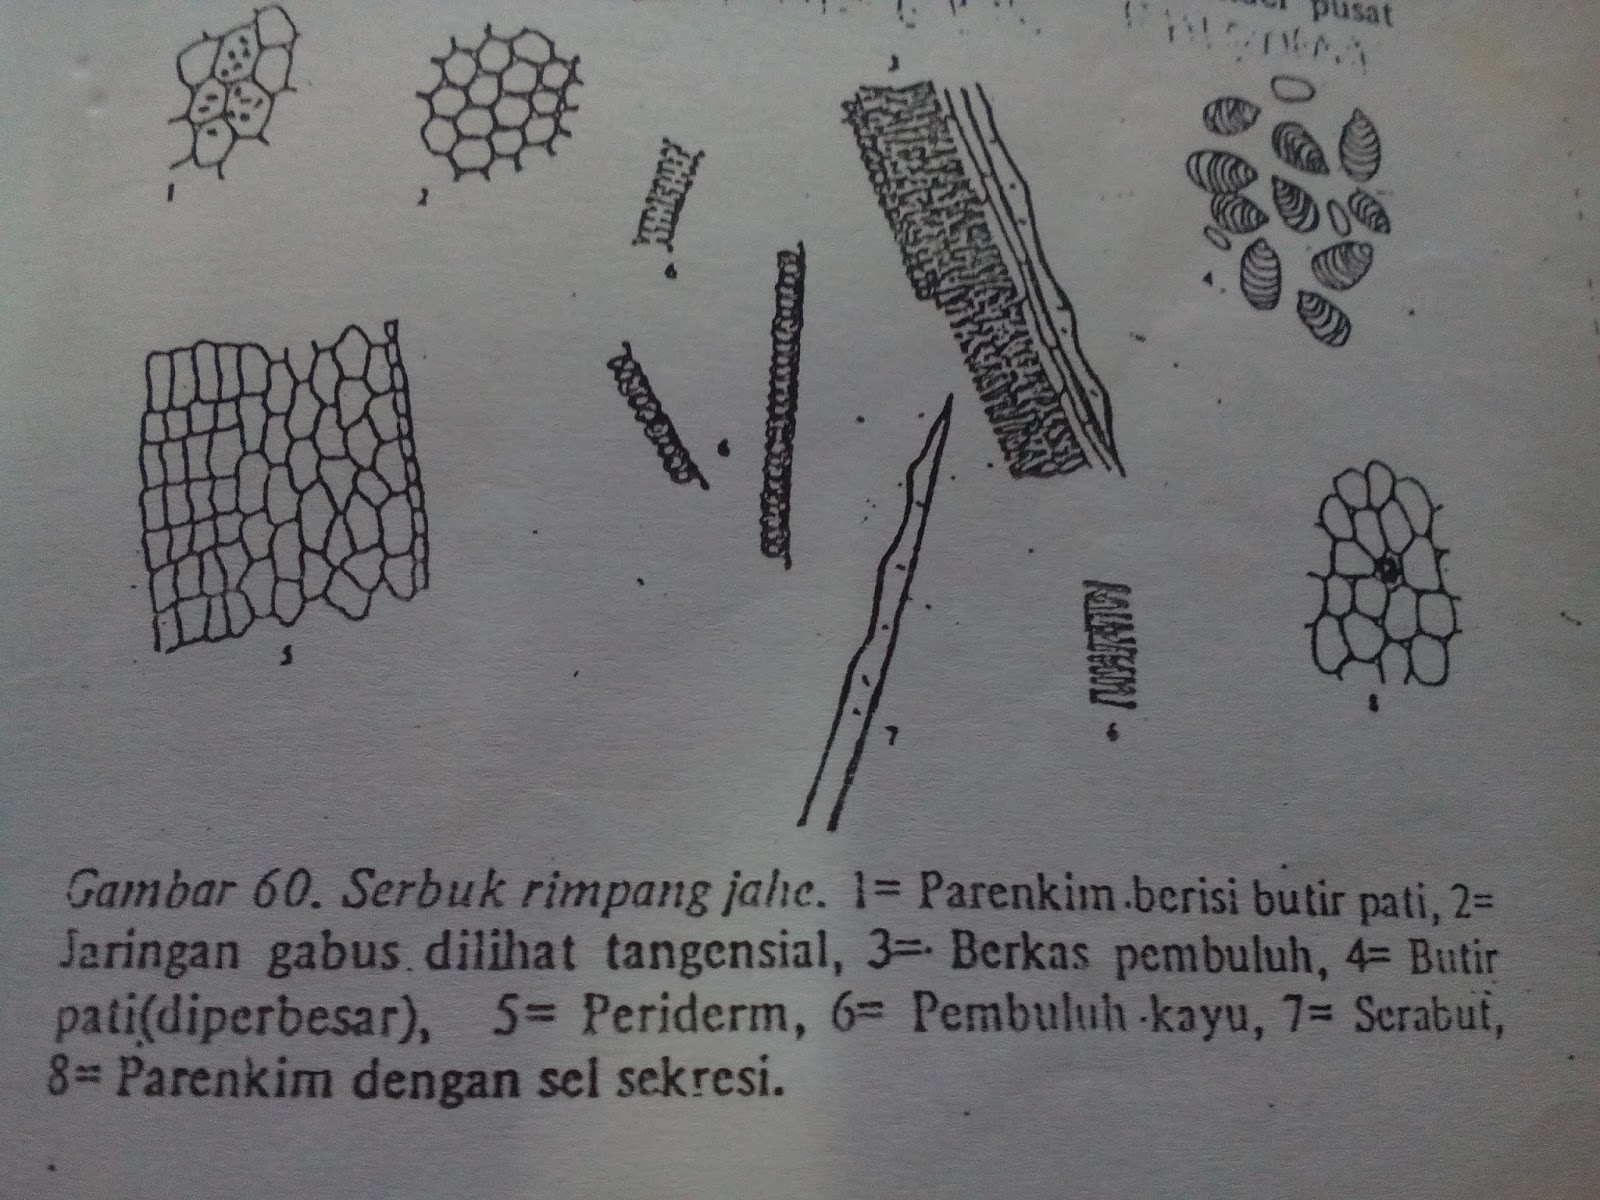 pusat
3
1
2
4
6
6
5
7
6
8
Gambar 60. Serbuk rimpang jahe. 1= Parenkim berisi butir pati, 2=
Jaringan gabus dilihat tangensial, 3= Berkas pembuluh, 4= Butir
pati(diperbesar), 5= Periderm, 6= Pembuluh kayu, 7= Serabut,
8= Parenkim dengan sel sekresi.